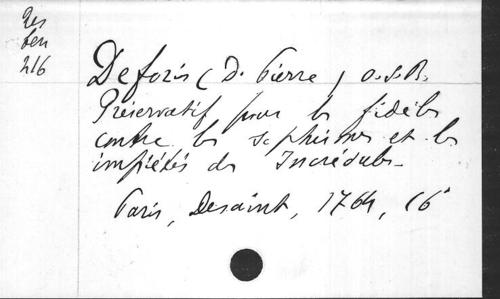 Res
ben
216
Deforis (D. Pierre) o.s.B.
Préservatif pour les fidèles
contre les sophismes et les
impiétés des Incrédules_
Paris, Desaint, 1764, 16°